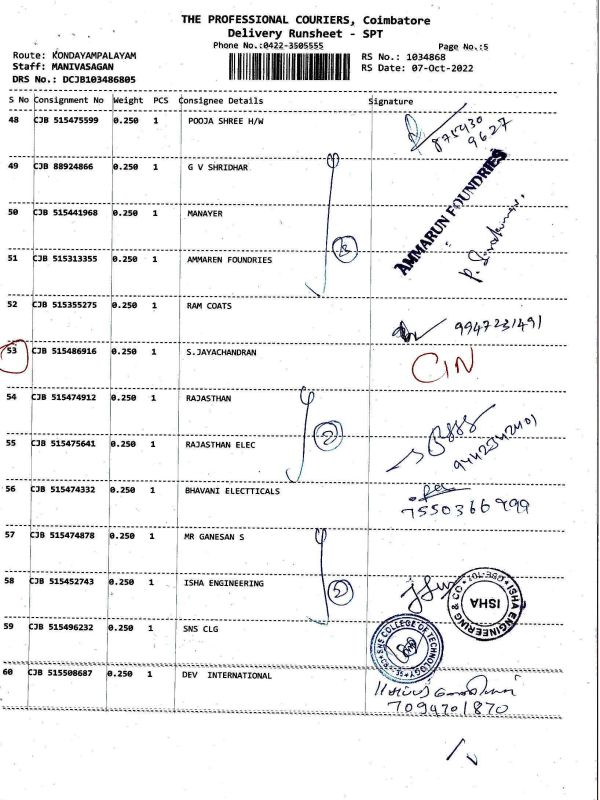 THE PROFESSIONAL COURIERS, Coimbatore
Delivery Runsheet - SPT
Phone No.:0422-3505555 Page No.:5
Route: KONDAYAMPALAYAM RS No.: 1034868
Staff: MANIVASAGAN RS Date: 07-Oct-2022
DRS No.: DCJB103486805
S No Consignment No Weight PCS Consignee Details Signature
48 CJB 515475599 0.250 1 POOJA SHREE H/W
9627
49 CJB 88924866 0.250 1 G V SHRIDHAR
50 CJB 515441968 0.250 1 MANAYER
AMMARUN FOUNDRIES
3
51 CJB 515313355 0.250 1 AMMAREN FOUNDRIES
52 CJB 515355275 0.250 1 RAM COATS
9947231491
53 CJB 515486916 0.250 1 S.JAYACHANDRAN
CIN
54 CJB 515474912 0.250 1 RAJASTHAN
2
55 CJB 515475641 0.250 1 RAJASTHAN ELEC
56 CJB 515474332 0.250 1 BHAVANI ELECTTICALS
7550366999
57 CJB 515474878 0.250 1 MR GANESAN S
58 CJB 515452743 0.250 1 ISHA ENGINEERING
ISHA ENGINEERING & CO
ISHA
59 CJB 515496232 0.250 1 SNS CLG
COLLEGE OF TECHNOLOGY
60 CJB 515508687 0.250 1 DEV INTERNATIONAL
7094701870